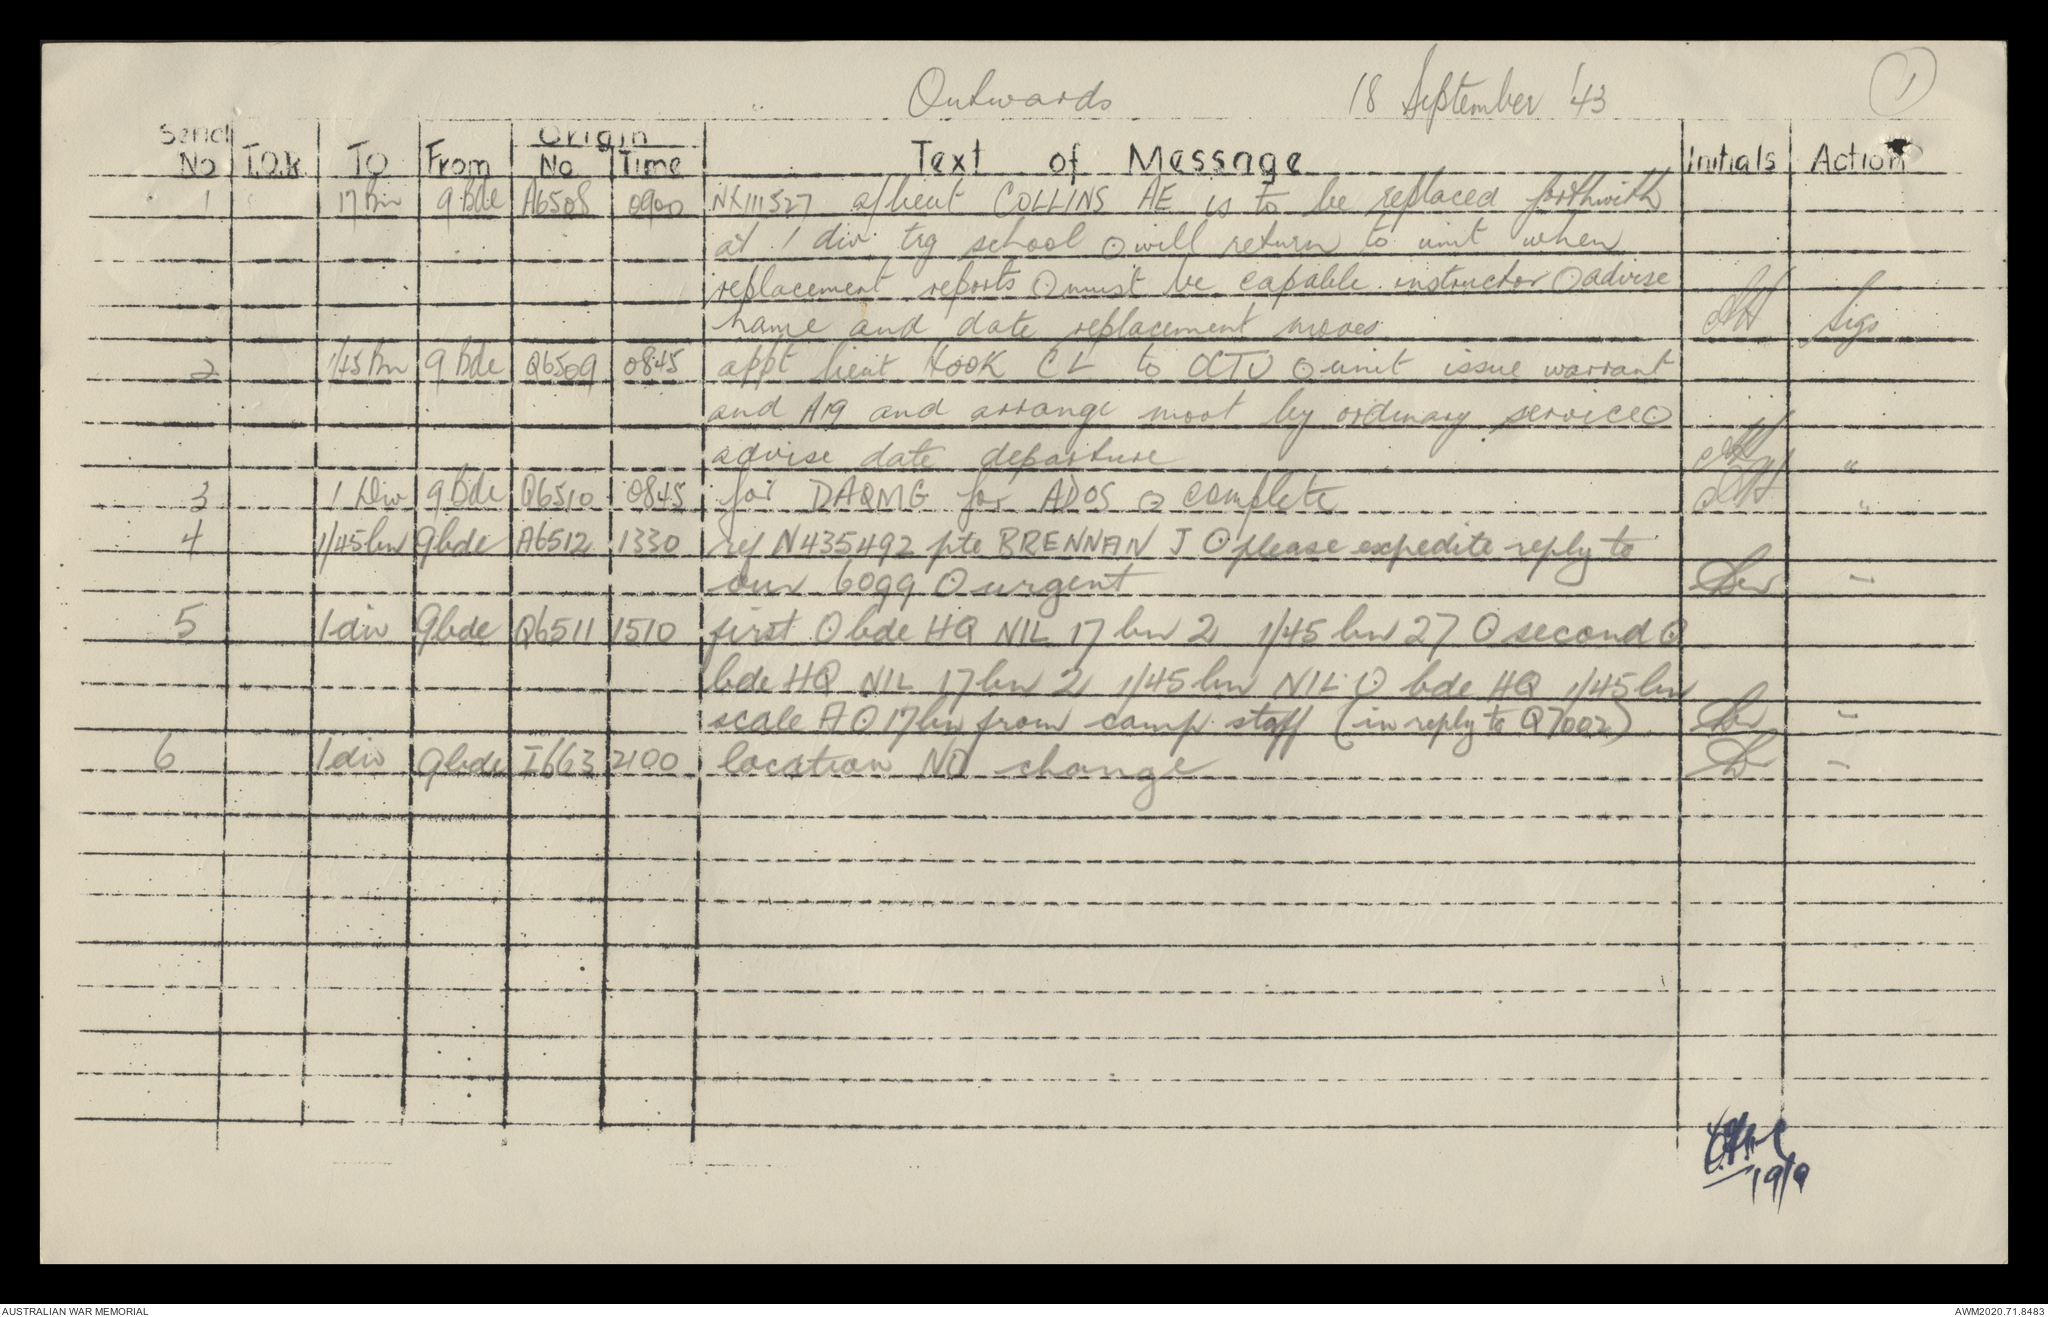 Outwards 18 September '43 1
Serial No T.O.R TO From Origin No Time Text of Message Initials Action
1 17 Bn 9 Bde A6508 0900 NX111527 a/lieut COLLINS AE is to be replaced forthwith
at 1 div trg school ⊙ will return to unit when
replacement reports ⊙ must be capable instructor ⊙ advise
name and date replacement moves Sigs
2 1/45 Bn 9 Bde Q6509 0845 appt lieut HOOK C L to OCTU ⊙ unit issue warrant
and A19 and arrange movt by ordinary service ⊙
advise date departure "
3 1 Div 9 Bde Q6510 0845 for DAQMG for ADOS ⊙ complete "
4 1/45 bn 9 bde A6512 1330 ref N435492 pte BRENNAN J ⊙ please expedite reply to
our 6099 ⊙ urgent "
5 1 div 9 bde Q6511 1510 first ⊙ bde HQ NIL 17 bn 2 1/45 bn 27 ⊙ second ⊙
bde HQ NIL 17 bn 2 1/45 bn NIL ⊙ bde HQ 1/45 bn
scale A ⊙ 17 bn from camp staff (in reply to Q7002) "
6 1 div 9 bde I663 2100 location NO change "
19/9
AUSTRALIAN WAR MEMORIAL AWM2020.71.8483